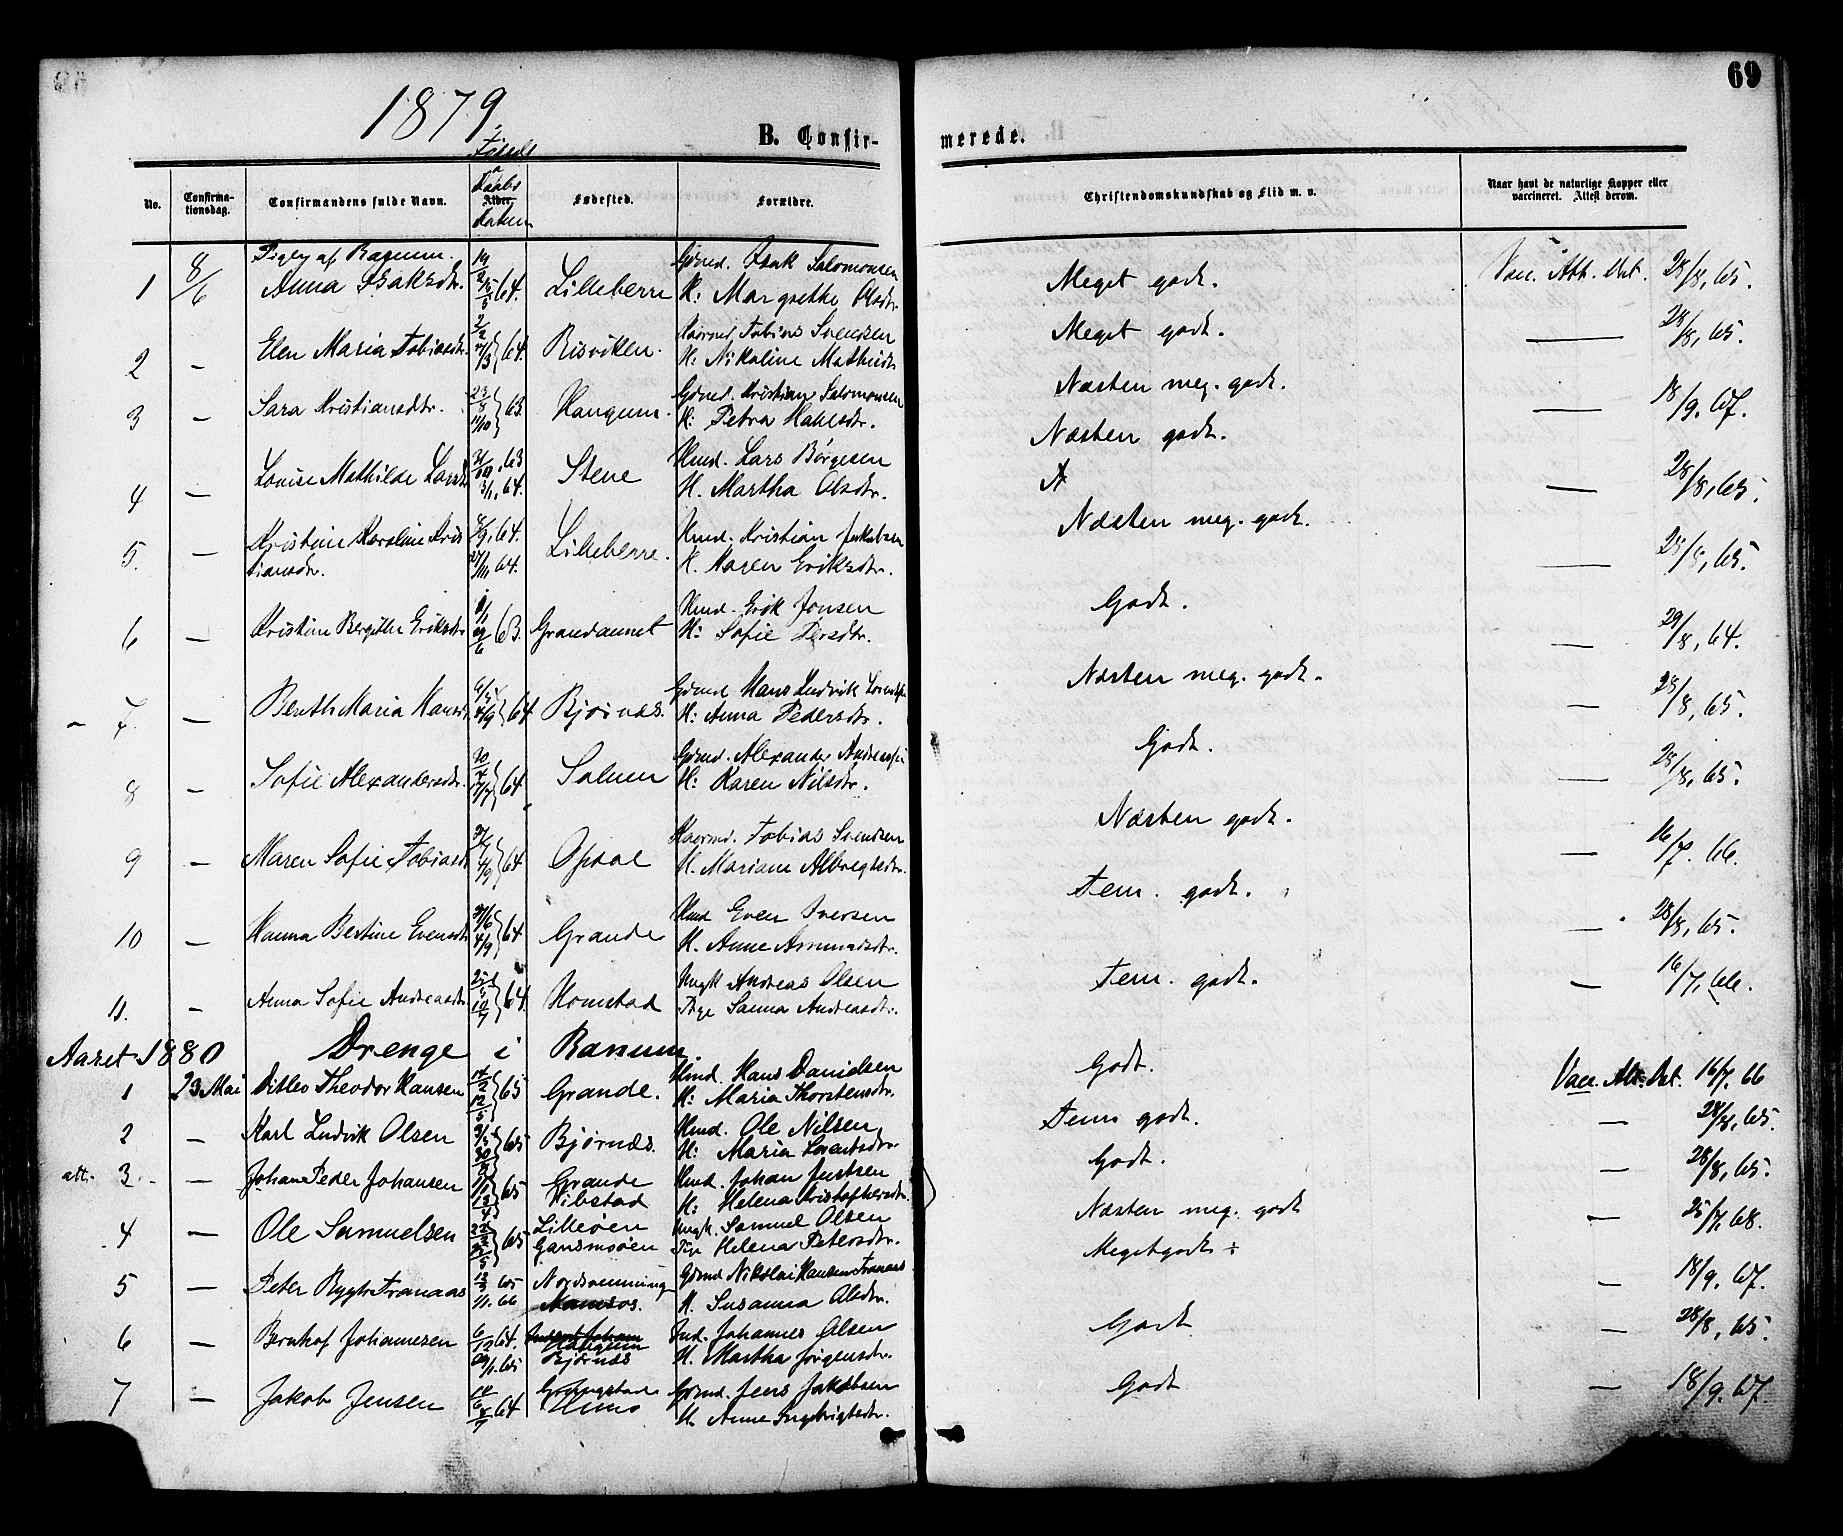 69
1879
B. Confir-
merede.
Føsels
Daabs
datum
No.
Confirma-
tionsdag.
Confirmandens fulde Navn.
Alder.
Fødested.
Forældre.
Christendomskundskab og Flid m. v.
Naar havt de naturlige Kopper eller
vaccineret. Attest derom.
Piger af Ranum.
1 8/6 Anna Isaksdtr. 64. Lilleberre Gdmd. Isak Salomonsen
K: Margrethe Olsdtr. Meget godt. Vac. Att. Dat. 28/8, 65.
2 — Elen Maria Tobiasdtr. 64. Risviken. Tobias Svendsen
H: Nikoline Mathisdtr Meget godt. — 28/8, 65.
3 — Sara Kristiansdtr. 63. Haugum. Gdmd. Kristian Salomonsen
K: Petra Næsten meg. godt. — 18/9. 67.
4 — Louise Mathilde Larsdtr 63 3/1, 64. Stene Hmd. Lars Børgesen
H. Martha Olsdtr. Næsten godt. — 28/8, 65.
5. — Kristine Karoline Kris
tiansdtr. 64. 64. Lilleberre. Hmd. Kristian Jakobsen
H. Maren Eriksdtr. Næsten meg. godt. — 28/8, 65.
6 — Kristine Bergitte Eriksdtr 63. Grandaunet Hmd. Erik Jonsen
H: Sofie Persdtr. Godt. — 29/8, 64.
7. — Maria Hansdtr 64 Bjørnes. Gdmd Hans Ludvik
H: Anna Pedersdtr. Næsten meg. godt. — 28/8, 65.
8 — Sofie Alexandersdtr. 64 Solum Gdmd. Alexander
H: Karen Nilsdtr. Godt. — 28/8, 65.
9 — Maren Sofie Tobiasdtr 64 Opdal Tobias Svendsen
H. Mariane Albregtsdtr. Næsten godt. — 16/7. 66.
10 — Hanna Bertine Evensdtr 4/9 64 Grande Hmd Even Iversen
H. Anne Tem. godt. — 28/8, 65.
11. — Anna Sofie Andreasdtr 64. Homstad Ungk Andreas Olsen
Pige Sanna Andreasdtr. Tem. godt. — 16/7, 66.
Aaret 1880 Drenge i Ranum.
1 23 Mai Ditlev Theodor Hansen 14/2 12/5 65 Grande. Hmd. Hans Danielsen
H: Maria Thorstensdtr. Godt. Vacc. Att. Dat. 16/7. 66
2 — Karl Ludvik Olsen 65 Bjørnes. Hmd. Ole Nilsen
H: Maria Lorentsdtr. Tem godt. — 28/8, 65.
att. 3. — Johan Peder Johansen 65 Grande
Vibstad Hmd. Johan Justsen
H: Helena Kristoffersdtr. Godt. — 28/8, 65.
4 — Ole Samuelsen 65 Lilleøen
Gansmoen Ungk. Samuel Olsen
Pige Helena Petersdtr. Næsten meg. godt — 25/7, 68.
5 — Peter Rygh Tranaas 65 1/1. 66 Nordsvenning
Namsos. Gdmd Nikolai Hansen Tranaas
H. Susanna Olsdtr. Megetgodt ÷ — 18/9. 67.
6 — Bernhof Johannesen 6/12 64. 65 Haugum
Bjørnes Ind. Johannes Olsen
H. Martha Jørgensdtr. Godt — 28/8, 65.
7 — Jakob Jensen 64 Huno Gdmd. Jens Jakobsen
H Anne Ingebrigtsdtr. Godt — 18/9. 67.